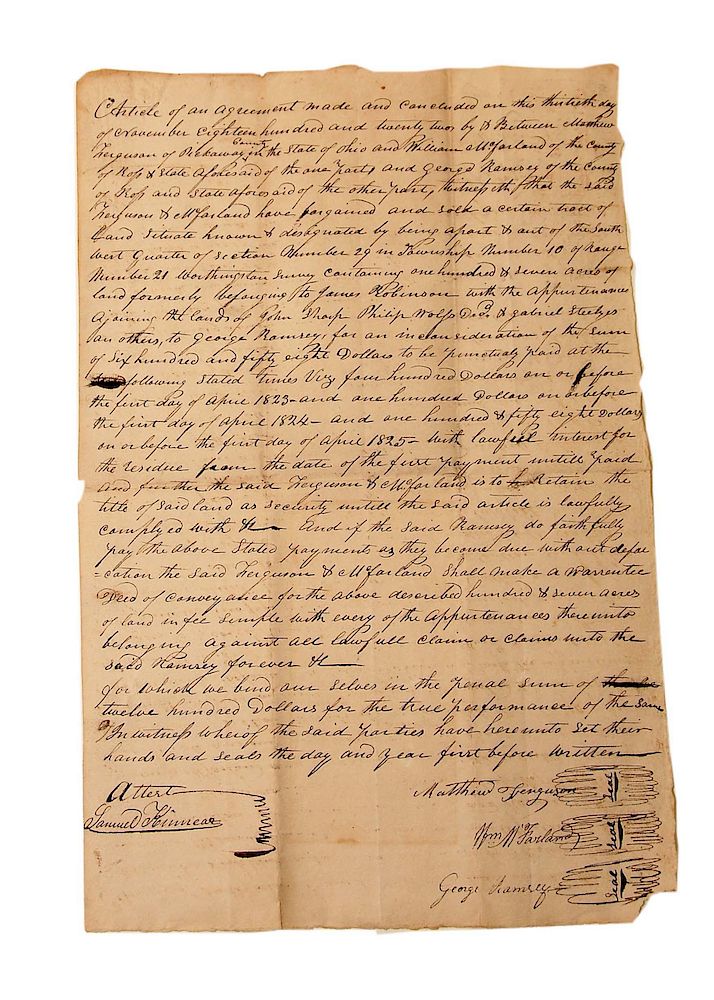 Article of an agreement made and concluded on this thirtieth day
of November Eighteen hundred and twenty two by & Between Matthew
Ferguson of Pickaway County in the State of Ohio and William McFarland of the County
of Ross & State Aforesaid of the one Part, and George Ramsey of the County
of Ross and State aforesaid of the other part, Witnesseth, that the said
Ferguson & McFarland have Bargained and Sold a certain tract of
Land Situate known & designated by being apart & out of the South
West Quarter of Section Number 29 in Township Number 10 of Range
Number 21 Worthington Survey Containing one hundred & seven acres of
land formerly belonging to James Robinson with the Appurtenances
Ajoining the lands of John Sharp Philip Wolfs Decd. & gabriel
an others, to George Ramsey for an inconsideration of the sum
of six hundred and fifty eight Dollars to be punctualy paid at the
following Stated times Viz four hundred Dollars on or before
the first day of April 1823 - and one hundred Dollars on or before
the first day of April 1824 - and one hundred & fifty eight Dollars
on or before the first day of April 1825 - with lawfull Interest for
the residue from the date of the first payment untill paid
and further the said Ferguson & McFarland is to Retain the
title of said land as security untill the said article is lawfully
complyed with &c - And if the said Ramsey do faithfully
pay the above Stated payments as they become due with out defal
=cation the said Ferguson & McFarland Shall make a warrentee
Deed of conveyance for the above described hundred & seven acres
of land in fee Simple with every of the Appurtenances thereunto
belonging against all lawfull claim or claims unto the
said Ramsey forever &c
for which we bind our selves in the penal sum of
twelve hundred Dollars for the true performance of the same
In witness wherof the said parties have here unto Set their
hands and seals the day and year first before written
Attest
Samuel Kinnear
Matthew Ferguson Seal
Wm McFarland Seal
George Ramsey Seal